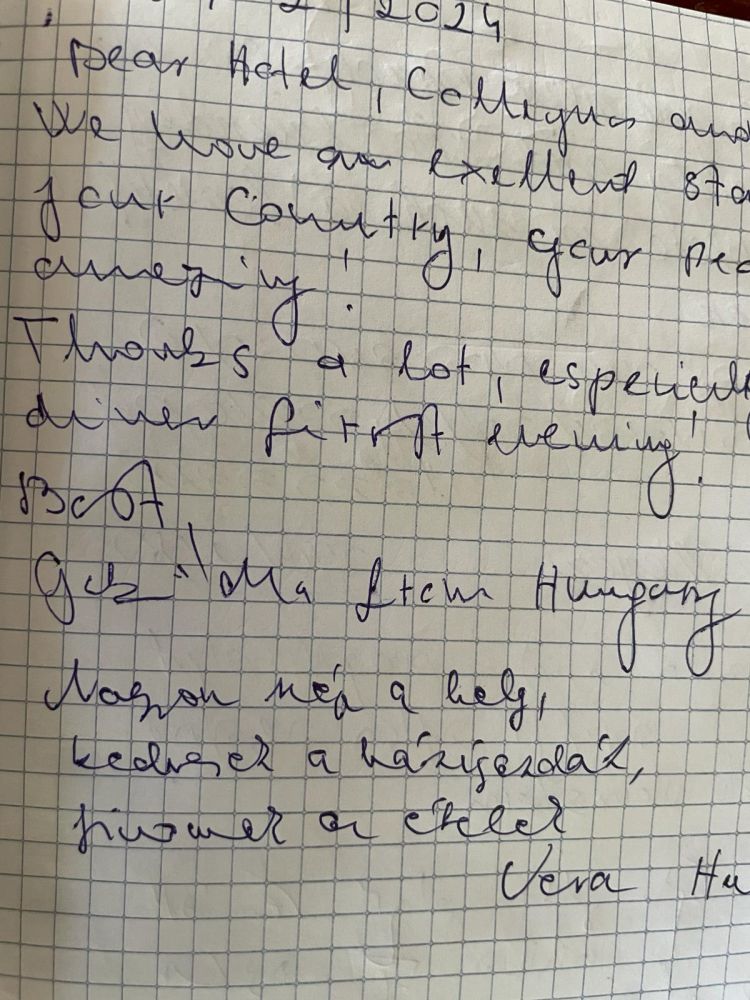 2 | 2024
Dear Hotel, Collegues and
We have an exellend sta
your Country, your peo
amezing!
Thanks a lot, especiell
diner first evening!
Best
from Hungary
Nagyon szép a hely,
kedvesek a házigazdák,
finomak az ételek
Vera Hu